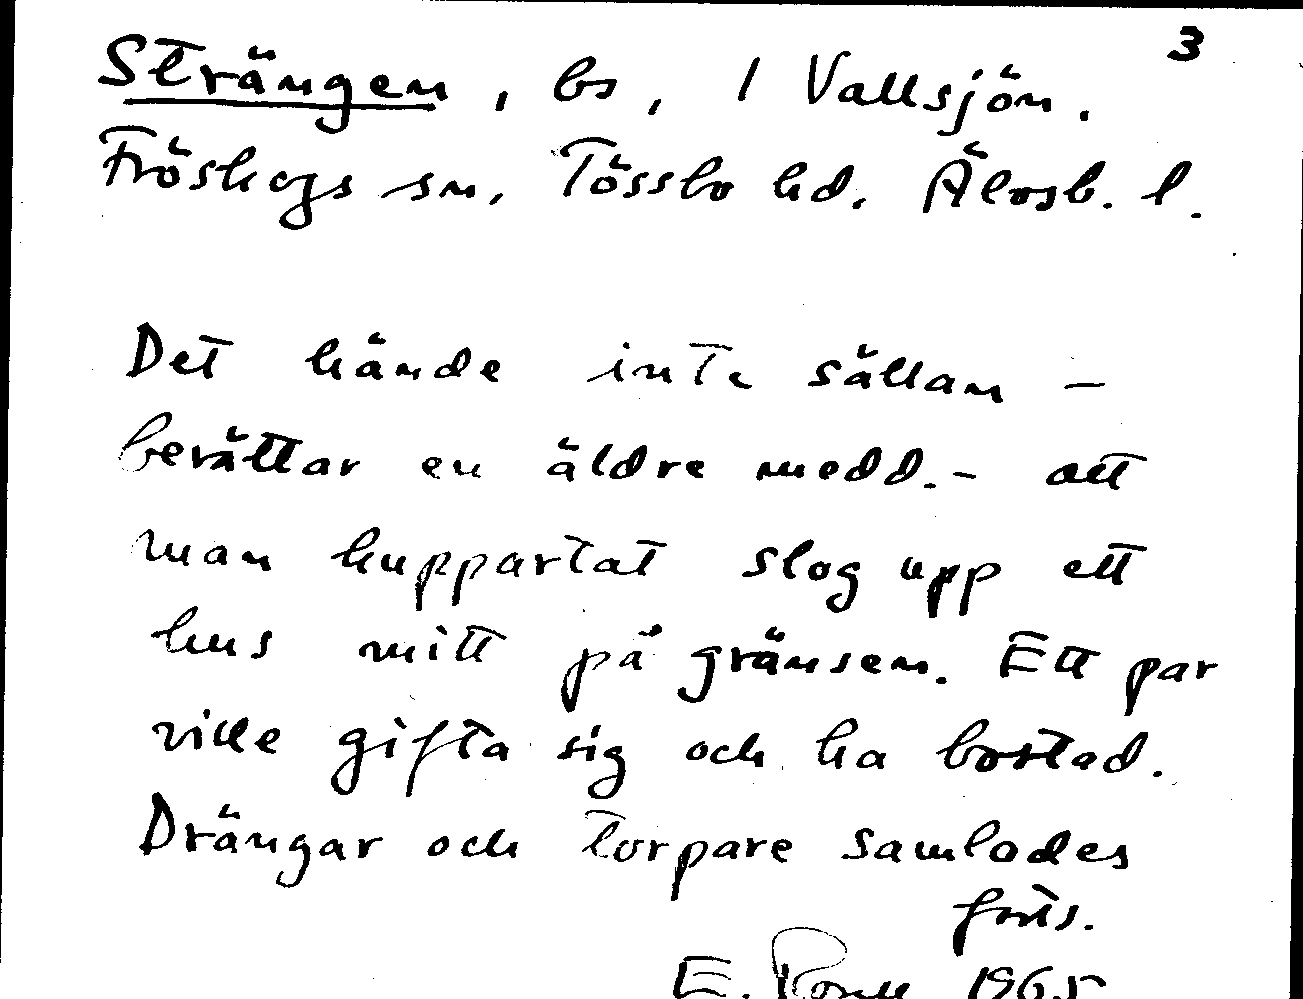 3
Strängen, bs, 1 Vallsjön.
Fröskogs sn. Tössbo hd. Älvsb. l.
Det hände inte sällan –
berättar en äldre medd. – att
man huppartat slog upp ett
hus mitt på gränsen. Ett par
ville gifta sig och ha bostad.
Drängar och torpare samlades
forts.
E. 1965